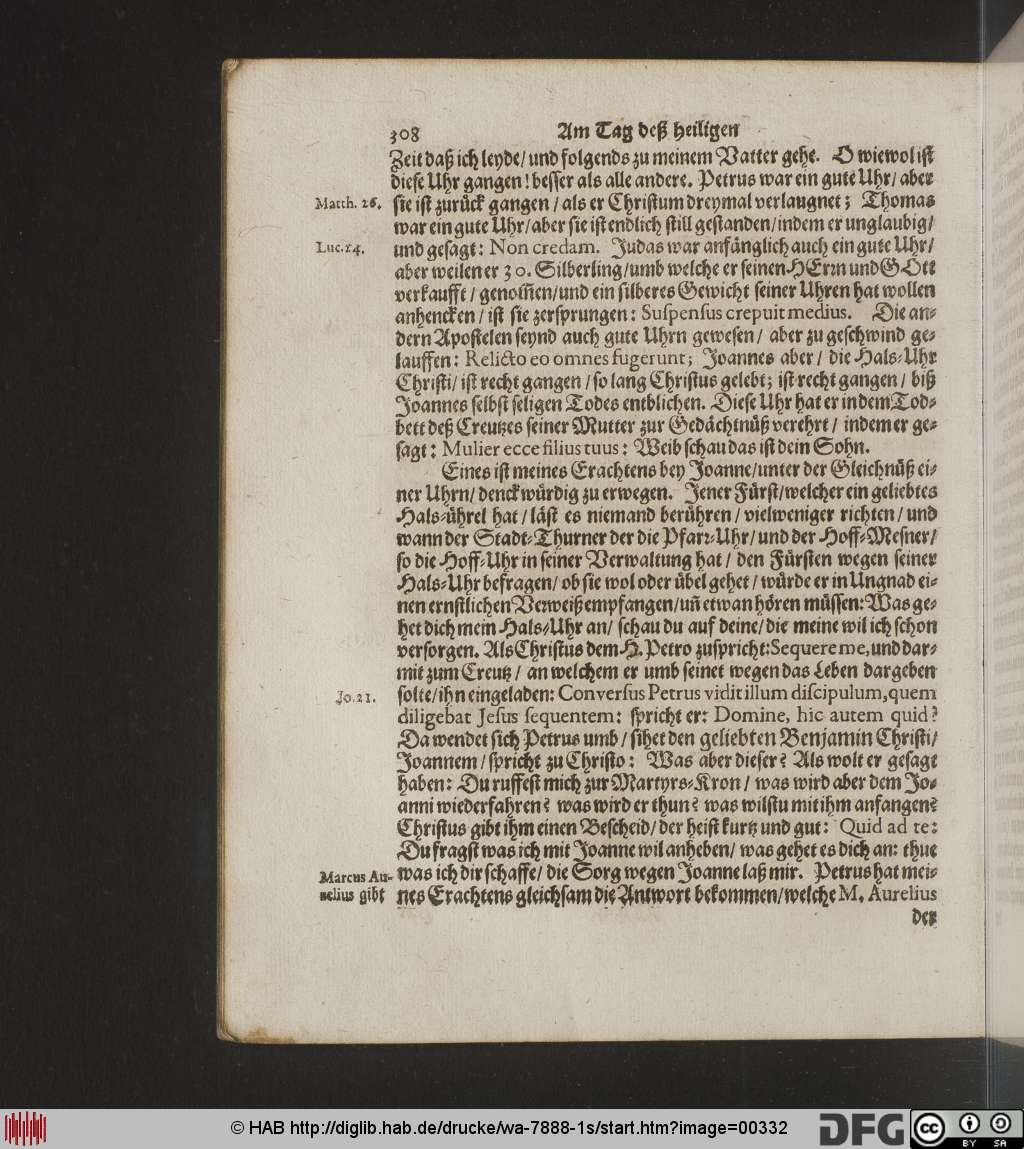 308 Am Tag deß heiligen
Zeit daß ich leyde/ und folgends zu meinem Vatter gehe. O wie wol ist
diese Uhr gangen! besser als alle andere. Petrus war ein gute Uhr/ aber
Matth. 26. sie ist zurück gangen / als er Christum dreymal verlaugnet; Thomas
war ein gute Uhr/ aber sie ist endlich still gestanden/ indem er unglaubig/
Luc. 24. und gesagt: Non credam. Judas war anfänglich auch ein gute Uhr/
aber weilen er 30. Silberling/ umb welche er seinen HErrn und GOtt
verkaufft / genom̃en/ und ein silberes Gewicht seiner Uhren hat wollen
anhencken/ ist sie zersprungen: Suspensus crepuit medius. Die an-
dern Apostelen seynd auch gute Uhrn gewesen/ aber zu geschwind ge-
lauffen: Relicto eo omnes fugerunt; Joannes aber/ die Hals-Uhr
Christi/ ist recht gangen / so lang Christus gelebt; ist recht gangen / biß
Joannes selbst seligen Todes entblichen. Diese Uhr hat er in dem Tod-
bett deß Creutzes seiner Mutter zur Gedächtnüß verehrt / indem er ge-
sagt: Mulier ecce filius tuus: Weib schau das ist dein Sohn.
Eines ist meines Erachtens bey Joanne/ unter der Gleichnüß ei-
ner Uhrn/ denckwürdig zu erwegen. Jener Fürst/ welcher ein geliebtes
Hals-ührel hat / läst es niemand berühren / vielweniger richten / und
wann der Stadt-Thurner der die Pfarr-Uhr/ und der Hoff-Mesner/
so die Hoff-Uhr in seiner Verwaltung hat / den Fürsten wegen seiner
Hals-Uhr befragen/ ob sie wol oder übel gehet / würde er in Ungnad ei-
nen ernstlichen Verweiß empfangen/ uñ etwan hören müssen: Was ge-
het dich mein Hals-Uhr an/ schau du auf deine/ die meine wil ich schon
versorgen. Als Christus dem H. Petro zuspricht: Sequere me, und dar-
mit zum Creutz / an welchem er umb seinet wegen das Leben dargeben
Jo. 21. solte/ ihn eingeladen: Conversus Petrus vidit illum discipulum, quem
diligebat Jesus sequentem: spricht er: Domine, hic autem quid?
Da wendet sich Petrus umb / sihet den geliebten Benjamin Christi/
Joannem / spricht zu Christo: Was aber dieser? Als wolt er gesagt
haben: Du ruffest mich zur Martyrs-Kron / was wird aber dem Jo-
anni wiederfahren? was wird er thun? was wilstu mit ihm anfangen?
Christus gibt ihm einen Bescheid/ der heist kurtz und gut: Quid ad te:
Du fragst was ich mit Joanne wil anheben/ was gehet es dich an: thue
Marcus Au- was ich dir schaffe/ die Sorg wegen Joanne laß mir. Petrus hat mei-
relius gibt nes Erachtens gleichsam die Antwort bekommen/ welche M. Aurelius
der
© HAB http://diglib.hab.de/drucke/wa-7888-1s/start.htm?image=00332
DFG
cc BY SA